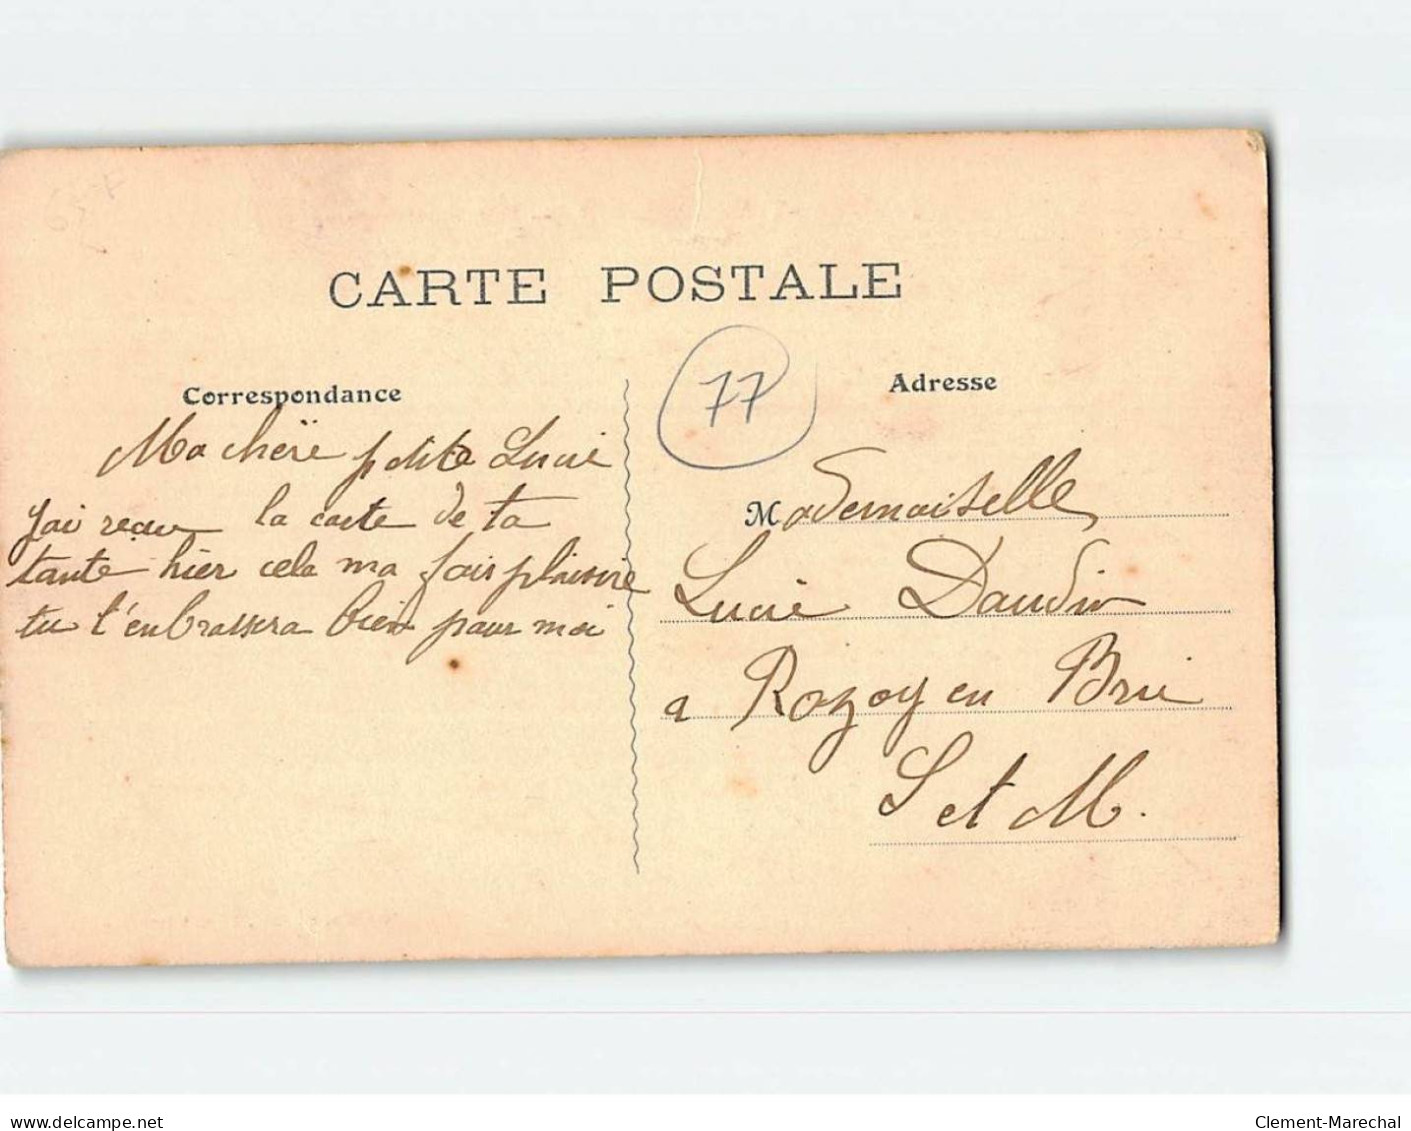 CARTE POSTALE
Correspondance
Ma chère petite Lucie
j'ai reçu la carte de ta
tante hier cela ma fais plaisire
tu l'enbrassera bien pour moi
77
Adresse
Mademoiselle
Lucie Daudin
a Rozoy en Brie
S et M.
www.delcampe.net
Clement-Marechal